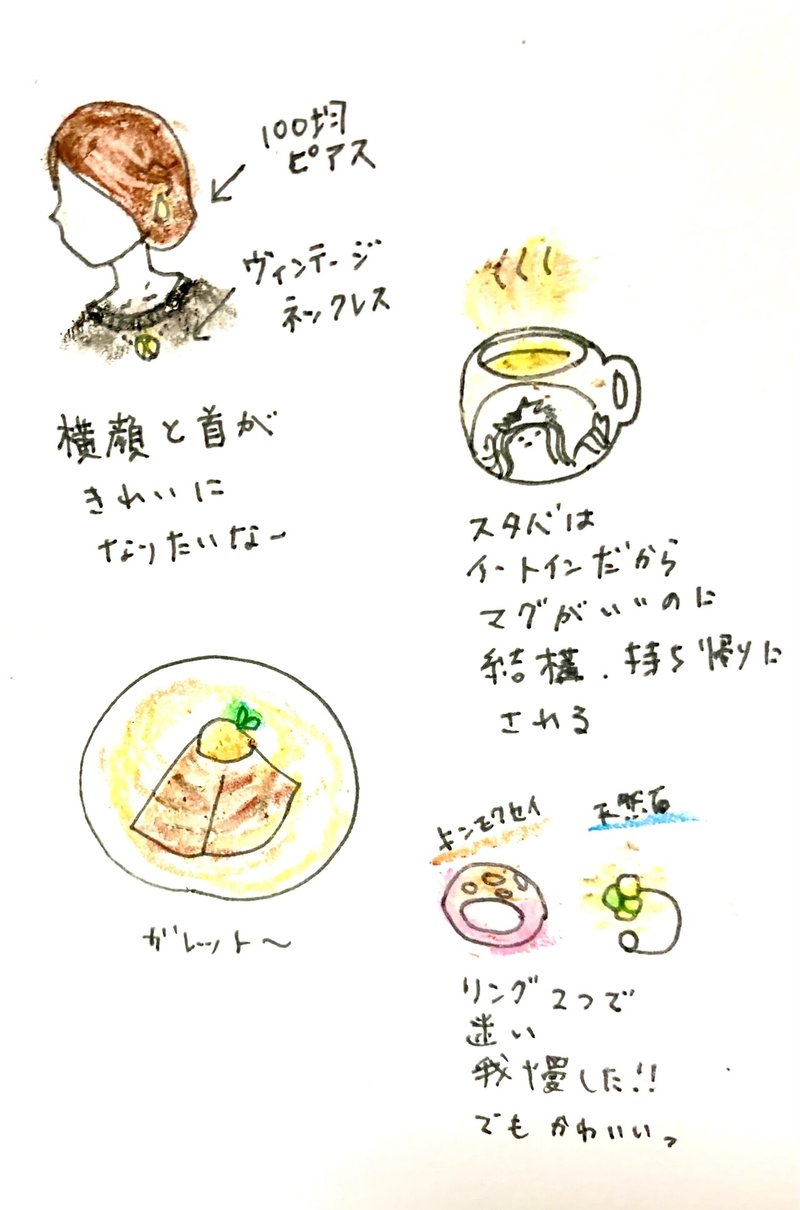 100均
ピアス
ヴィンテージ
ネックレス
横顔と首が
きれいに
なりたいな〜
スタバは
イートインだから
マグがいいのに
結構、持ち帰りに
される
ガレット〜
キンモクセイ
天然石
リング2つで
迷い
我慢した!!
でもかわいいっ